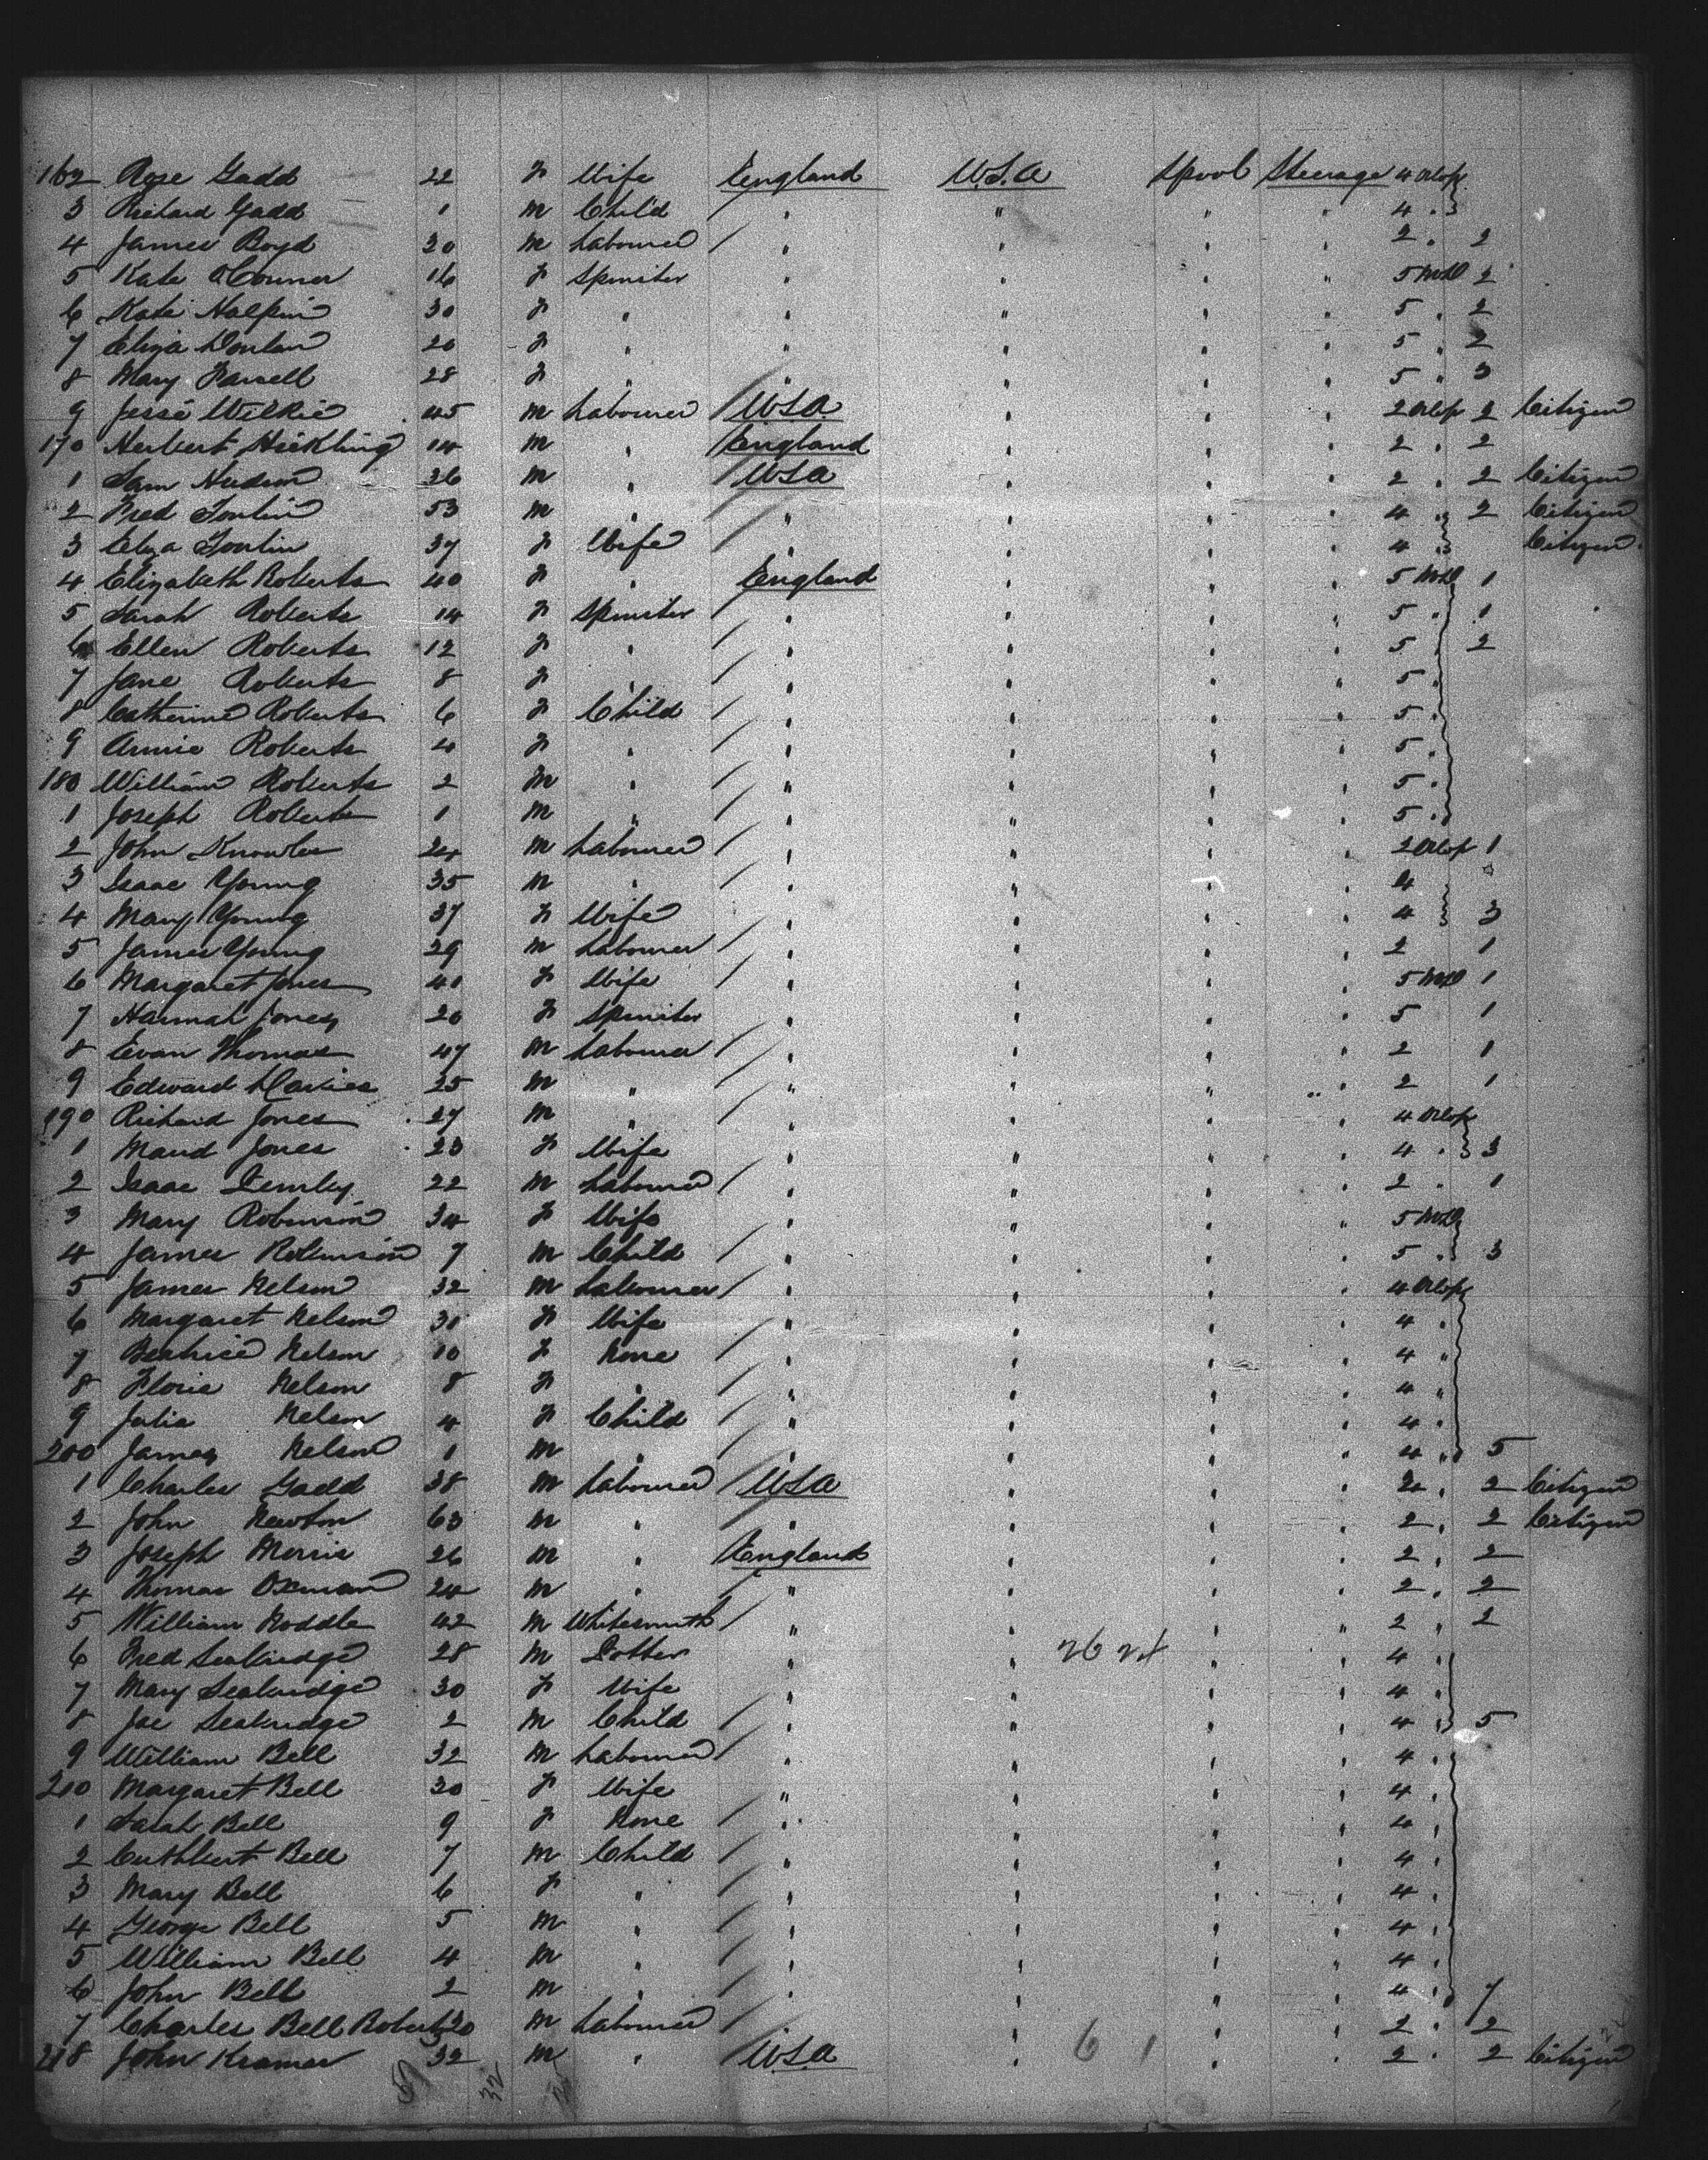 162 Rose Gadd 22 F Wife England U.S.A L'pool Steerage 4 Orlop
3 Richard Gadd 1 M Child / " " " " 4 "
4 James Boyd 30 M Labourer / " " " " 2 " 2
5 Kate O'Connor 16 F Spinster " " " " 5 Midl 2
6 Kate Halpin 30 F " " " " " 5 " 2
7 Eliza Donlan 20 F " " " " " 5 " 2
8 Mary Farrell 28 F " " " " " 5 " 3
9 Jesse Wilkie 45 M Labourer / U.S.A. " " " 2 Orlop 2 Citizen
170 Herbert Hickling 14 M " England " " " 2 " 2
1 Sam Hudson 36 M " U.S.A " " " 2 " 2 Citizen
2 Fred Tonlin 53 M " / " " " " 4 " 2 Citizen
3 Eliza Tonlin 37 F Wife / " " " " 4 " Citizen
4 Elizabeth Roberts 40 F " England " " " 5 Midl 1
5 Sarah Roberts 14 F Spinster / " " " " 5 " 1
6 Ellen Roberts 12 F " / " " " " 5 " 2
7 Jane Roberts 8 F " / " " " " 5 "
8 Catherine Roberts 6 F Child / " " " " 5 "
9 Annie Roberts 4 F " / " " " " 5 "
180 William Roberts 2 M " / " " " " 5 "
1 Joseph Roberts 1 M " / " " " " 5 "
2 John Knowles 24 M Labourer / " " " " 2 Orlop 1
3 Isaac Young 35 M " / " " " " 4
4 Mary Young 37 F Wife / " " " " 4 3
5 James Young 29 M Labourer / " " " " 2 1
6 Margaret Jones 41 F Wife / " " " " 5 Midl 1
7 Hannah Jones 20 F Spinster / " " " " 5 1
8 Evan Thomas 47 M Labourer / " " " " 2 1
9 Edward Davies 25 M " / " " " " 2 1
190 Richard Jones 27 M " / " " " " 4 Orlop
1 Maud Jones 23 F Wife / " " " " 4 " 3
2 Isaac 22 M Labourer / " " " " 2 " 1
3 Mary Robinson 34 F Wife / " " " " 5 Midl
4 James Robinson 7 M Child / " " " " 5 " 3
5 James Nelson 32 M Labourer / " " " " 4 Orlop
6 Margaret Nelson 31 F Wife / " " " " 4 "
7 Beatrice Nelson 10 F None / " " " " 4 "
8 Florie Nelson 8 F " / " " " " 4 "
9 Julia Nelson 4 F Child / " " " " 4 "
200 James Nelson 1 M " / " " " " 4 " 5
1 Charles Gadd 38 M Labourer / U.S.A " " " 2 " 2 Citizen
2 John Newton 63 M " / " " " " 2 " 2 Citizen
3 Joseph Morris 26 M " England " " " 2 " 2
4 Thomas Oxman 24 M " / " " " " 2 " 2
5 William Noddle 42 M Whitesmith / " " " " 2 " 2
6 Fred Seabridge 28 M Potter " " " " 4 "
7 Mary Seabridge 30 F Wife / " " " " 4 "
8 Joe Seabridge 2 M Child / " " " " 4 " 5
9 William Bell 32 M Labourer / " " " " 4 "
210 Margaret Bell 30 F Wife / " " " " 4 "
1 Sarah Bell 9 F None / " " " " 4 "
2 Cuthbert Bell 7 M Child / " " " " 4 "
3 Mary Bell 6 F " / " " " " 4 "
4 George Bell 5 M " / " " " " 4 "
5 William Bell 4 M " / " " " " 4 "
6 John Bell 2 M " / " " " " 4 " 7
7 Charles Bell Roberts 20 M Labourer / " " " " 2 " 2
218 John Kramer 32 M " U.S.A " 6 1 " " 2 " 2 Citizen
32